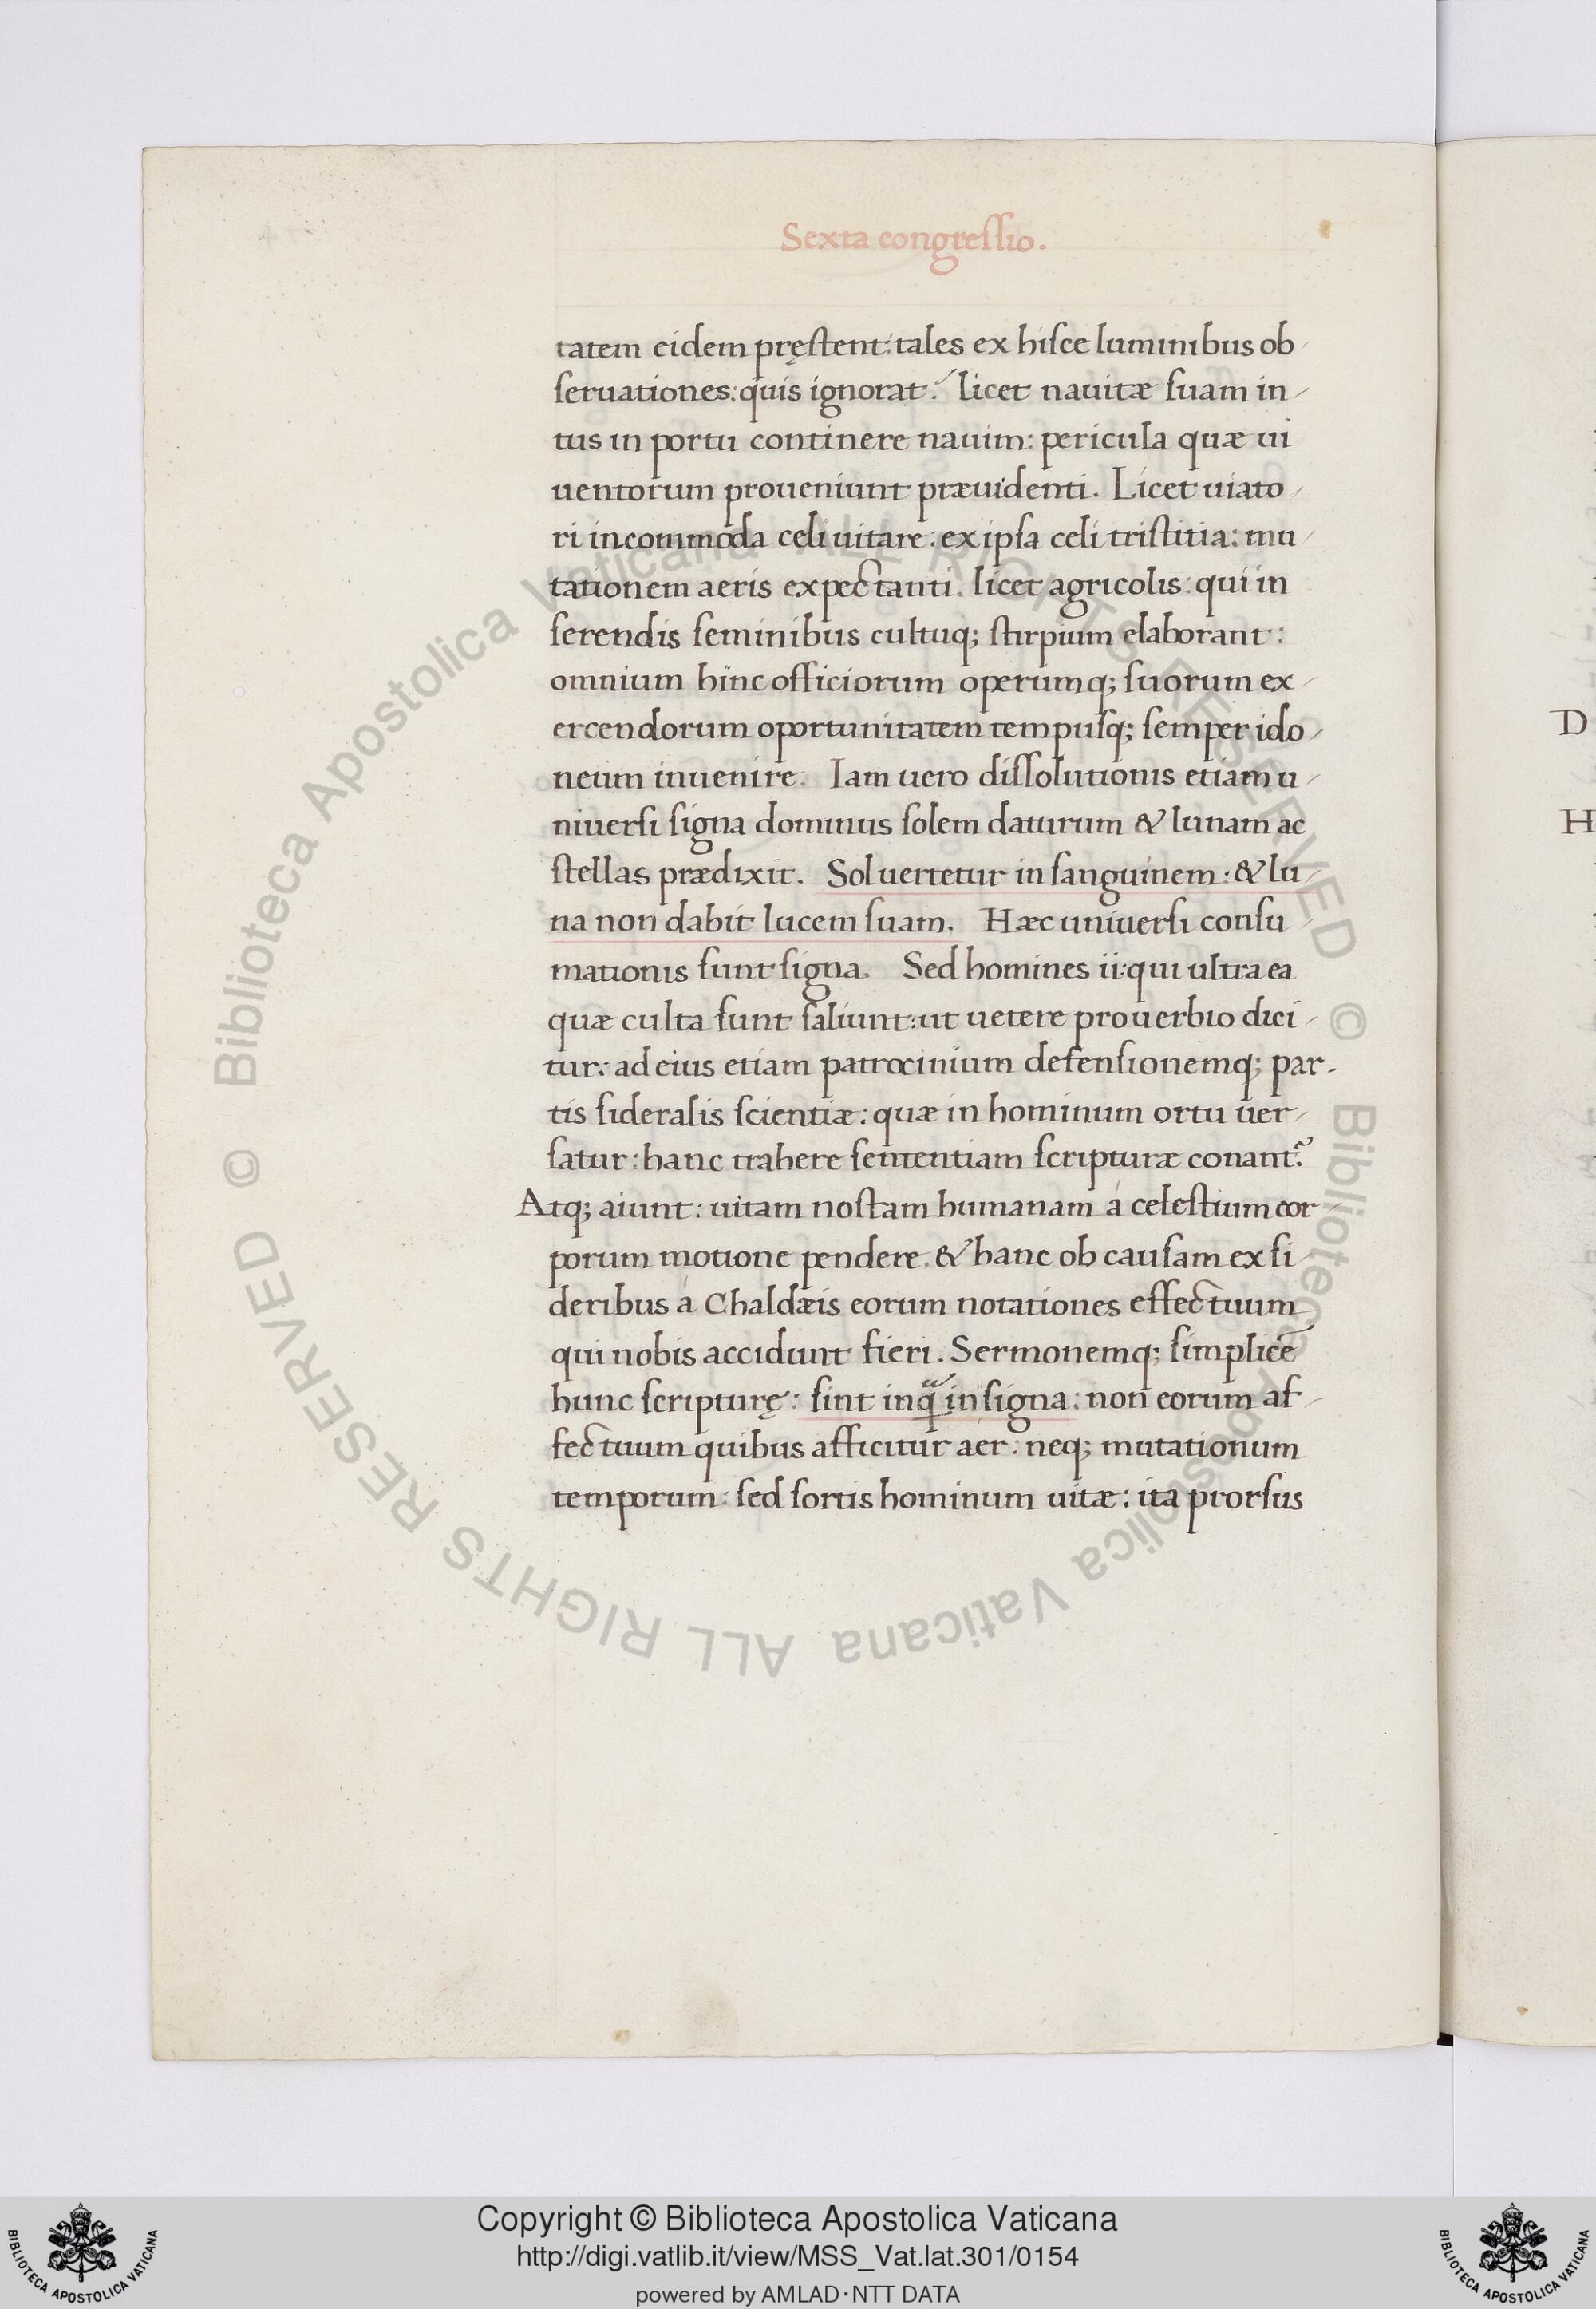 Sexta congreſſio.
tatem eidem pręſtent: tales ex hiſce luminibus ob-
ſeruationes: quis ignorat? licet nauitæ ſuam in-
tus in portu continere nauim: pericula quæ ui
uentorum proueniunt præuidenti. Licet uiato-
ri incommoda celi uitare: ex ipſa celi triſtitia: mu-
tationem aeris expectanti. licet agricolis: qui in
ſerendis ſeminibus cultuq; ſtirpium elaborant:
omnium hinc officiorum operumq; ſuorum ex-
ercendorum oportunitatem tempuſq; ſemper ido-
neum inuenire. Iam uero diſſolutionis etiam u-
niuerſi ſigna dominus ſolem daturum & lunam ac
ſtellas prædixit. Sol uertetur in ſanguinem: & lu-
na non dabit lucem ſuam. Hæc uniuerſi conſu-
mationis ſunt ſigna. Sed homines ii: qui ultra ea
quæ culta ſunt ſaliunt: ut uetere prouerbio dici-
tur: ad eius etiam patrocinium defenſionemq; par-
tis ſideralis ſcientiæ: quæ in hominum ortu uer-
ſatur: hanc trahere ſententiam ſcripturæ conant᷑.
Atq; aiunt: uitam noſtam humanam á celeſtium cor-
porum motione pendere. & hanc ob cauſam ex ſi-
deribus á Chaldæis eorum notationes effectuum
qui nobis accidunt fieri. Sermonemq; ſimplicē
hunc ſcripturę: ſint inqͣ in ſigna: non eorum af-
fectuum quibus afficitur aer: neq; mutationum
temporum: ſed ſortis hominum uitæ: ita prorſus
D
H
© Biblioteca Apostolica Vaticana ALL RIGHTS RESERVED © Biblioteca Apostolica Vaticana ALL RIGHTS RESERVED
Copyright © Biblioteca Apostolica Vaticana
http://digi.vatlib.it/view/MSS_Vat.lat.301/0154
powered by AMLAD·NTT DATA
BIBLIOTECA APOSTOLICA VATICANA
BIBLIOTECA APOSTOLICA VATICANA